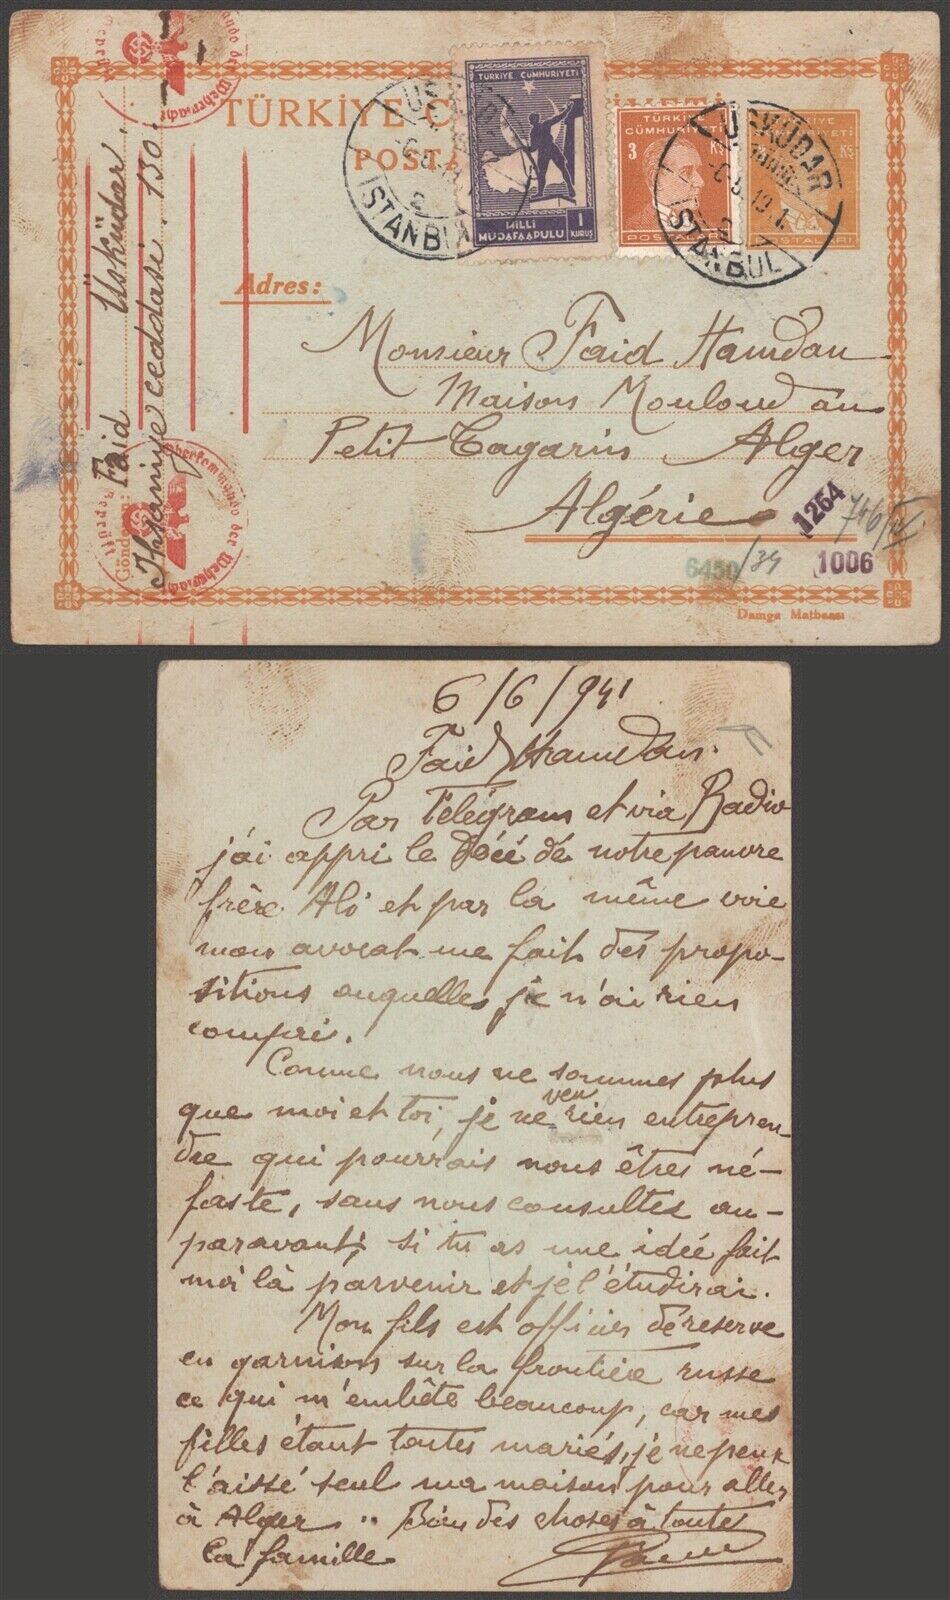 TÜRKİYE C
POSTA
TÜRKİYE CUMHURİYETİ
MİLLİ
MÜDAFAA PULU
1
KURUŞ
TÜRKİYE
CÜMHURİYETİ
3 KŞ
POSTALARI
ÜSKÜDAR
İSTANBUL
ÜSKÜDAR
İSTANBUL
Adres:
Monsieur Faid Hamdan
Maison Mouloud au
Petit Tagarin Alger
Algérie
1264
746
6450
/34
1006
Damga Matbaası
Gönderen:
Faid Üsküdar
Ihsaniye ceddasi 130
Oberkommando der Wehrmacht
Geprüft
6/6/941
Faid Hamdan.
Par Télégram et via Radio
j'ai appri le Décé dé notre pauvre
frère Ali et par la même voie
mon avocat me fait des propo-
sitions auquelles je n'ai rien
compri.
Comme nous ne sommes plus
que moi et toi, je ne veu rien entrepren-
dre qui pourrais nous êtres né-
faste, sans nous consulter au-
paravant; si tu as une idée fait
moi là parvenir et je l'étudirai.
Mon fils est officier dé reserve
en garnison sur la frontière russe
ce qui m'embête beaucoup, car mes
filles étant toutes mariés, je ne peux
l'aissé seul ma maison pour aller
à Alger .. Bien des choses à toutes
la famille.